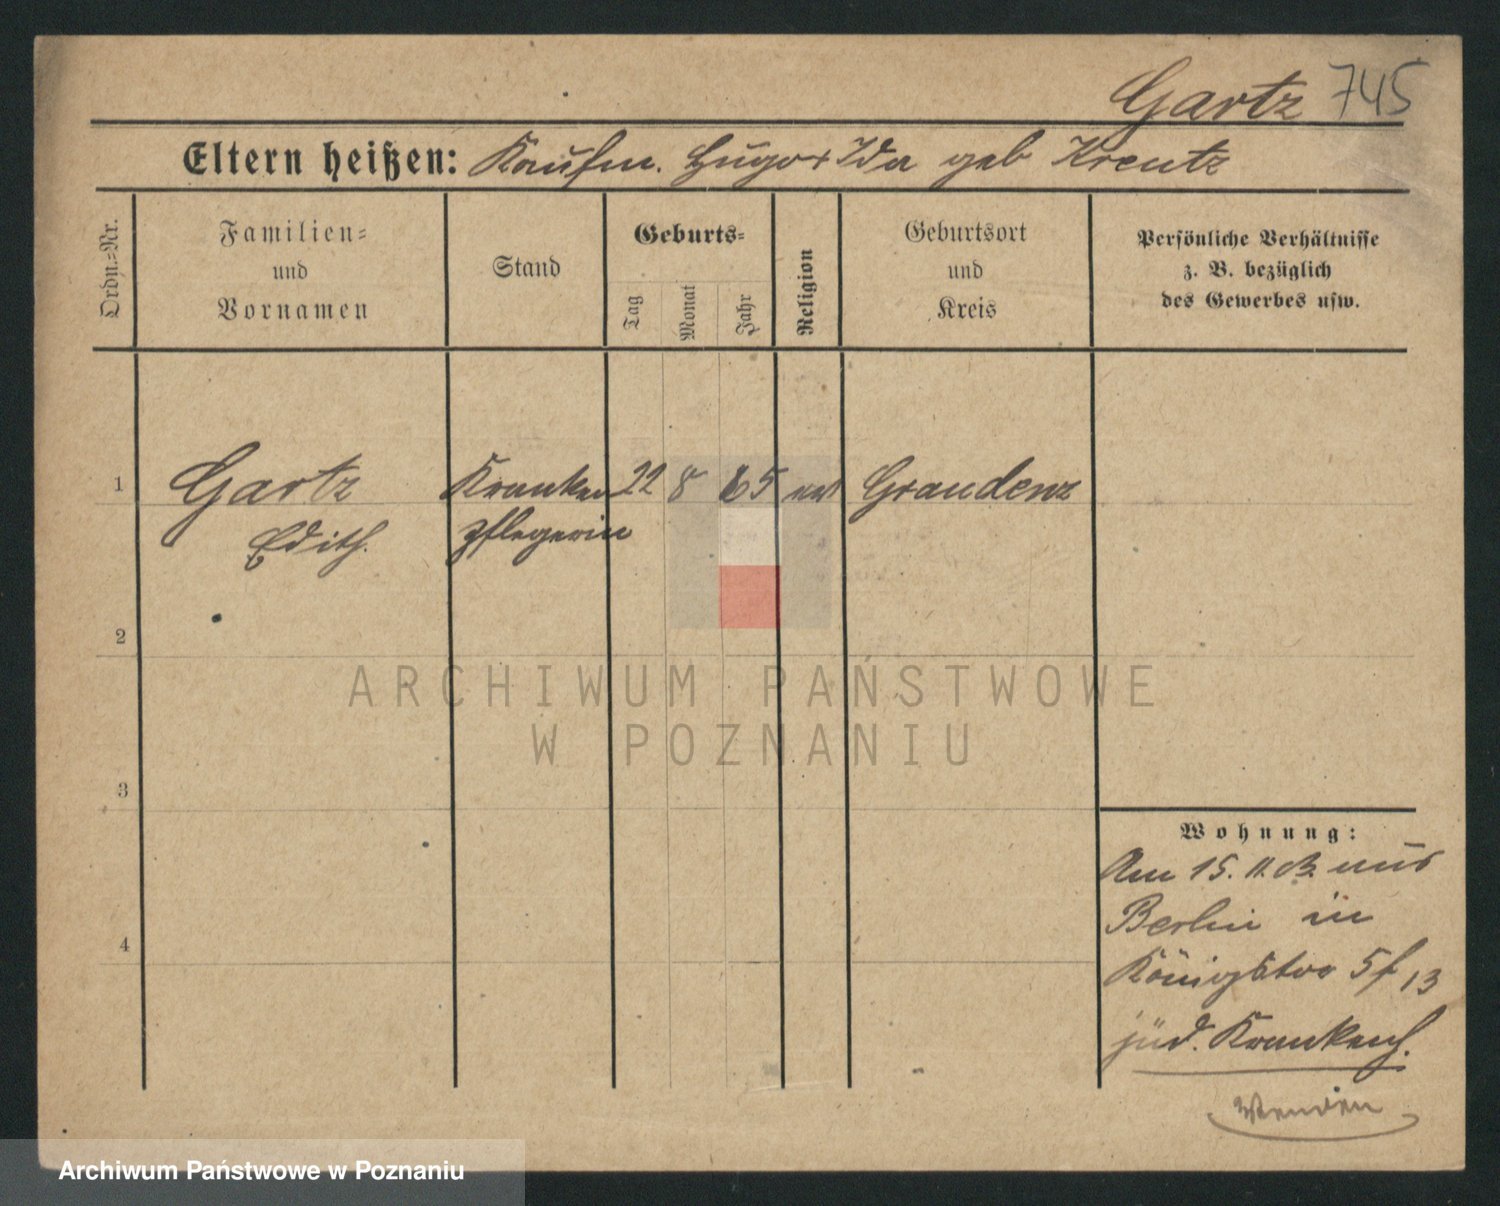 Gartz 745
Eltern heißen: Kaufm. Hugo + Ida geb Kreutz
Ordn.=Nr.
Familien=
und
Vornamen
Stand
Geburts=
Tag
Monat
Jahr
Religion
Geburtsort
und
Kreis
Persönliche Verhältnisse
z. B. bezüglich
des Gewerbes usw.
1 Gartz Kranken 22 8 65 Graudenz
Edith. pflegerin
2
3
4
ARCHIWUM PAŃSTWOWE
W POZNANIU
Wohnung:
Am 15. 11. aus
Berlin in
Königstr 5 f 13
jüd. Krankenh.
Wenden
Archiwum Państwowe w Poznaniu